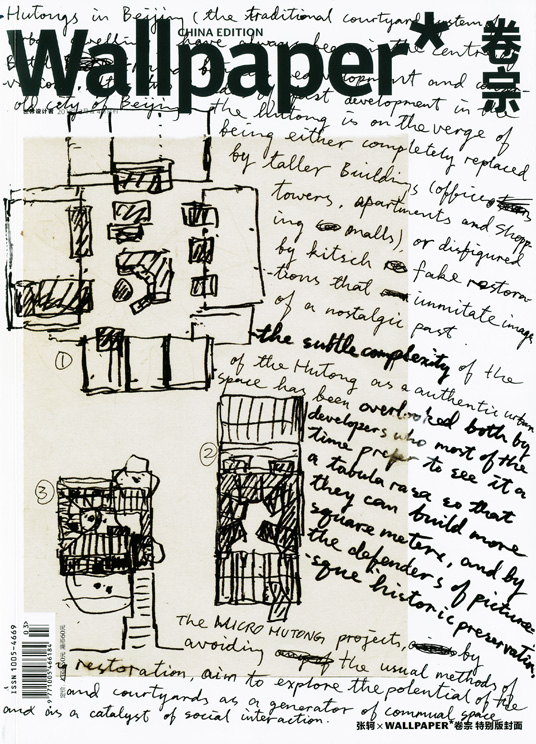 Hutongs in Beijing (the traditional courtyard system
CHINA EDITION
Wallpaper*
卷宗
old city of Beijing, the hutong is on the verge of
being either completely replaced
by taller Buildings (office
towers, apartments and Shopp
ing malls), or disfigured
by kitsch fake restora-
-tions that immitate image
of a nostalgic past.
①
the subtle complexity of the
of the Hutong as a authentic urban
space has been overlooked both by
developers who most of the
time prefer to see it a
a tabula rasa so that
they can build more
square meters, and by
the defenders of picture
sque historic preservation.
②
③
The MICRO HUTONG projects, by
avoiding the usual methods of
restoration, aim to explore the potential of the
and courtyards as a generator of communal space
and as a catalyst of social interaction.
ISSN 1005-4669
03>
9 771005 466184
张轲 × WALLPAPER*卷宗 特别版封面